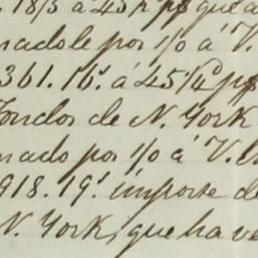 18/3 á 45 pp que a
nadole por 1/0 á V.
361.16. á 45 1/4 pp
Fondos de N. York
nado por 1/0 á V.
918.19. importe de
N. York, que have